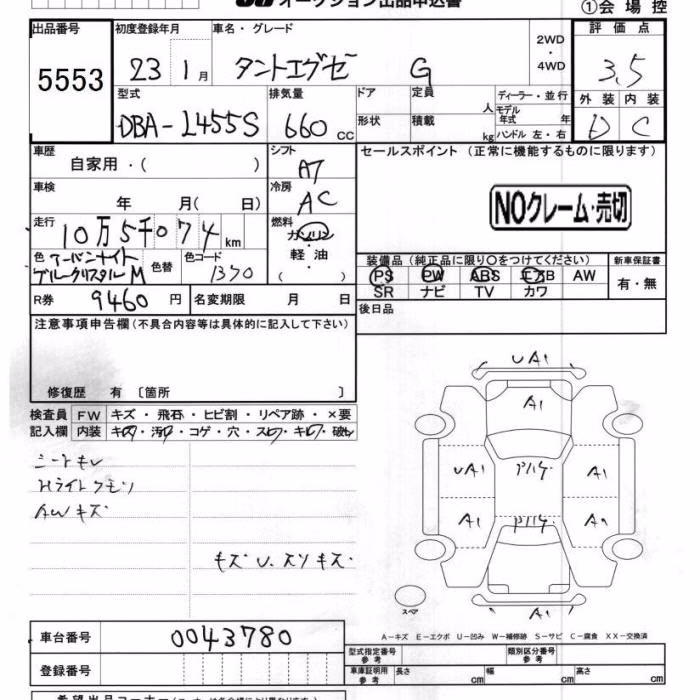 オークション出品申込書
①会場控
出品番号 初度登録年月 車名・グレード 2WD・4WD 評価点
5553 23 1月 タントエグゼ G 3.5
型式 排気量 ドア 定員 人 ディーラー・並行 外装 内装
DBA-L455S 660cc 形状 積載 kg モデル年式 年 ハンドル 左・右 D C
車歴 シフト セールスポイント (正常に機能するものに限ります)
自家用・( ) AT
車検 冷房 NOクレーム・売切
年 月( 日) AC
走行 燃料
10万5千074km ガソリン
軽油
( )
色 アーバンナイトブルークリスタルM 色替 色コード 1370
装備品 (純正品に限り○をつけてください) 新車保証書
PS PW ABS エアB AW 有・無
SR ナビ TV カワ
R券 9460円 名変期限 月 日
後日品
注意事項申告欄(不具合内容等は具体的に記入して下さい)
修復歴 有 〔箇所 〕
検査員 FW キズ・飛石・ヒビ割・リペア跡・×要
記入欄 内装 キズ・汚れ・コゲ・穴・スレ・キレ・破れ
シートモレ
Hライトクモリ
AWキズ
キズ U. スリキズ.
UA1
A1
UA1 A1
A1
A1
スペア
A-キズ E-エクボ U-凹み W-補修跡 S-サビ C-腐食 XX-交換済
車台番号 0043780
登録番号
型式指定番号 参考 類別区分番号 参考
車庫証明用 参考 長さ cm 幅 cm 高さ cm
希望出品コーナー